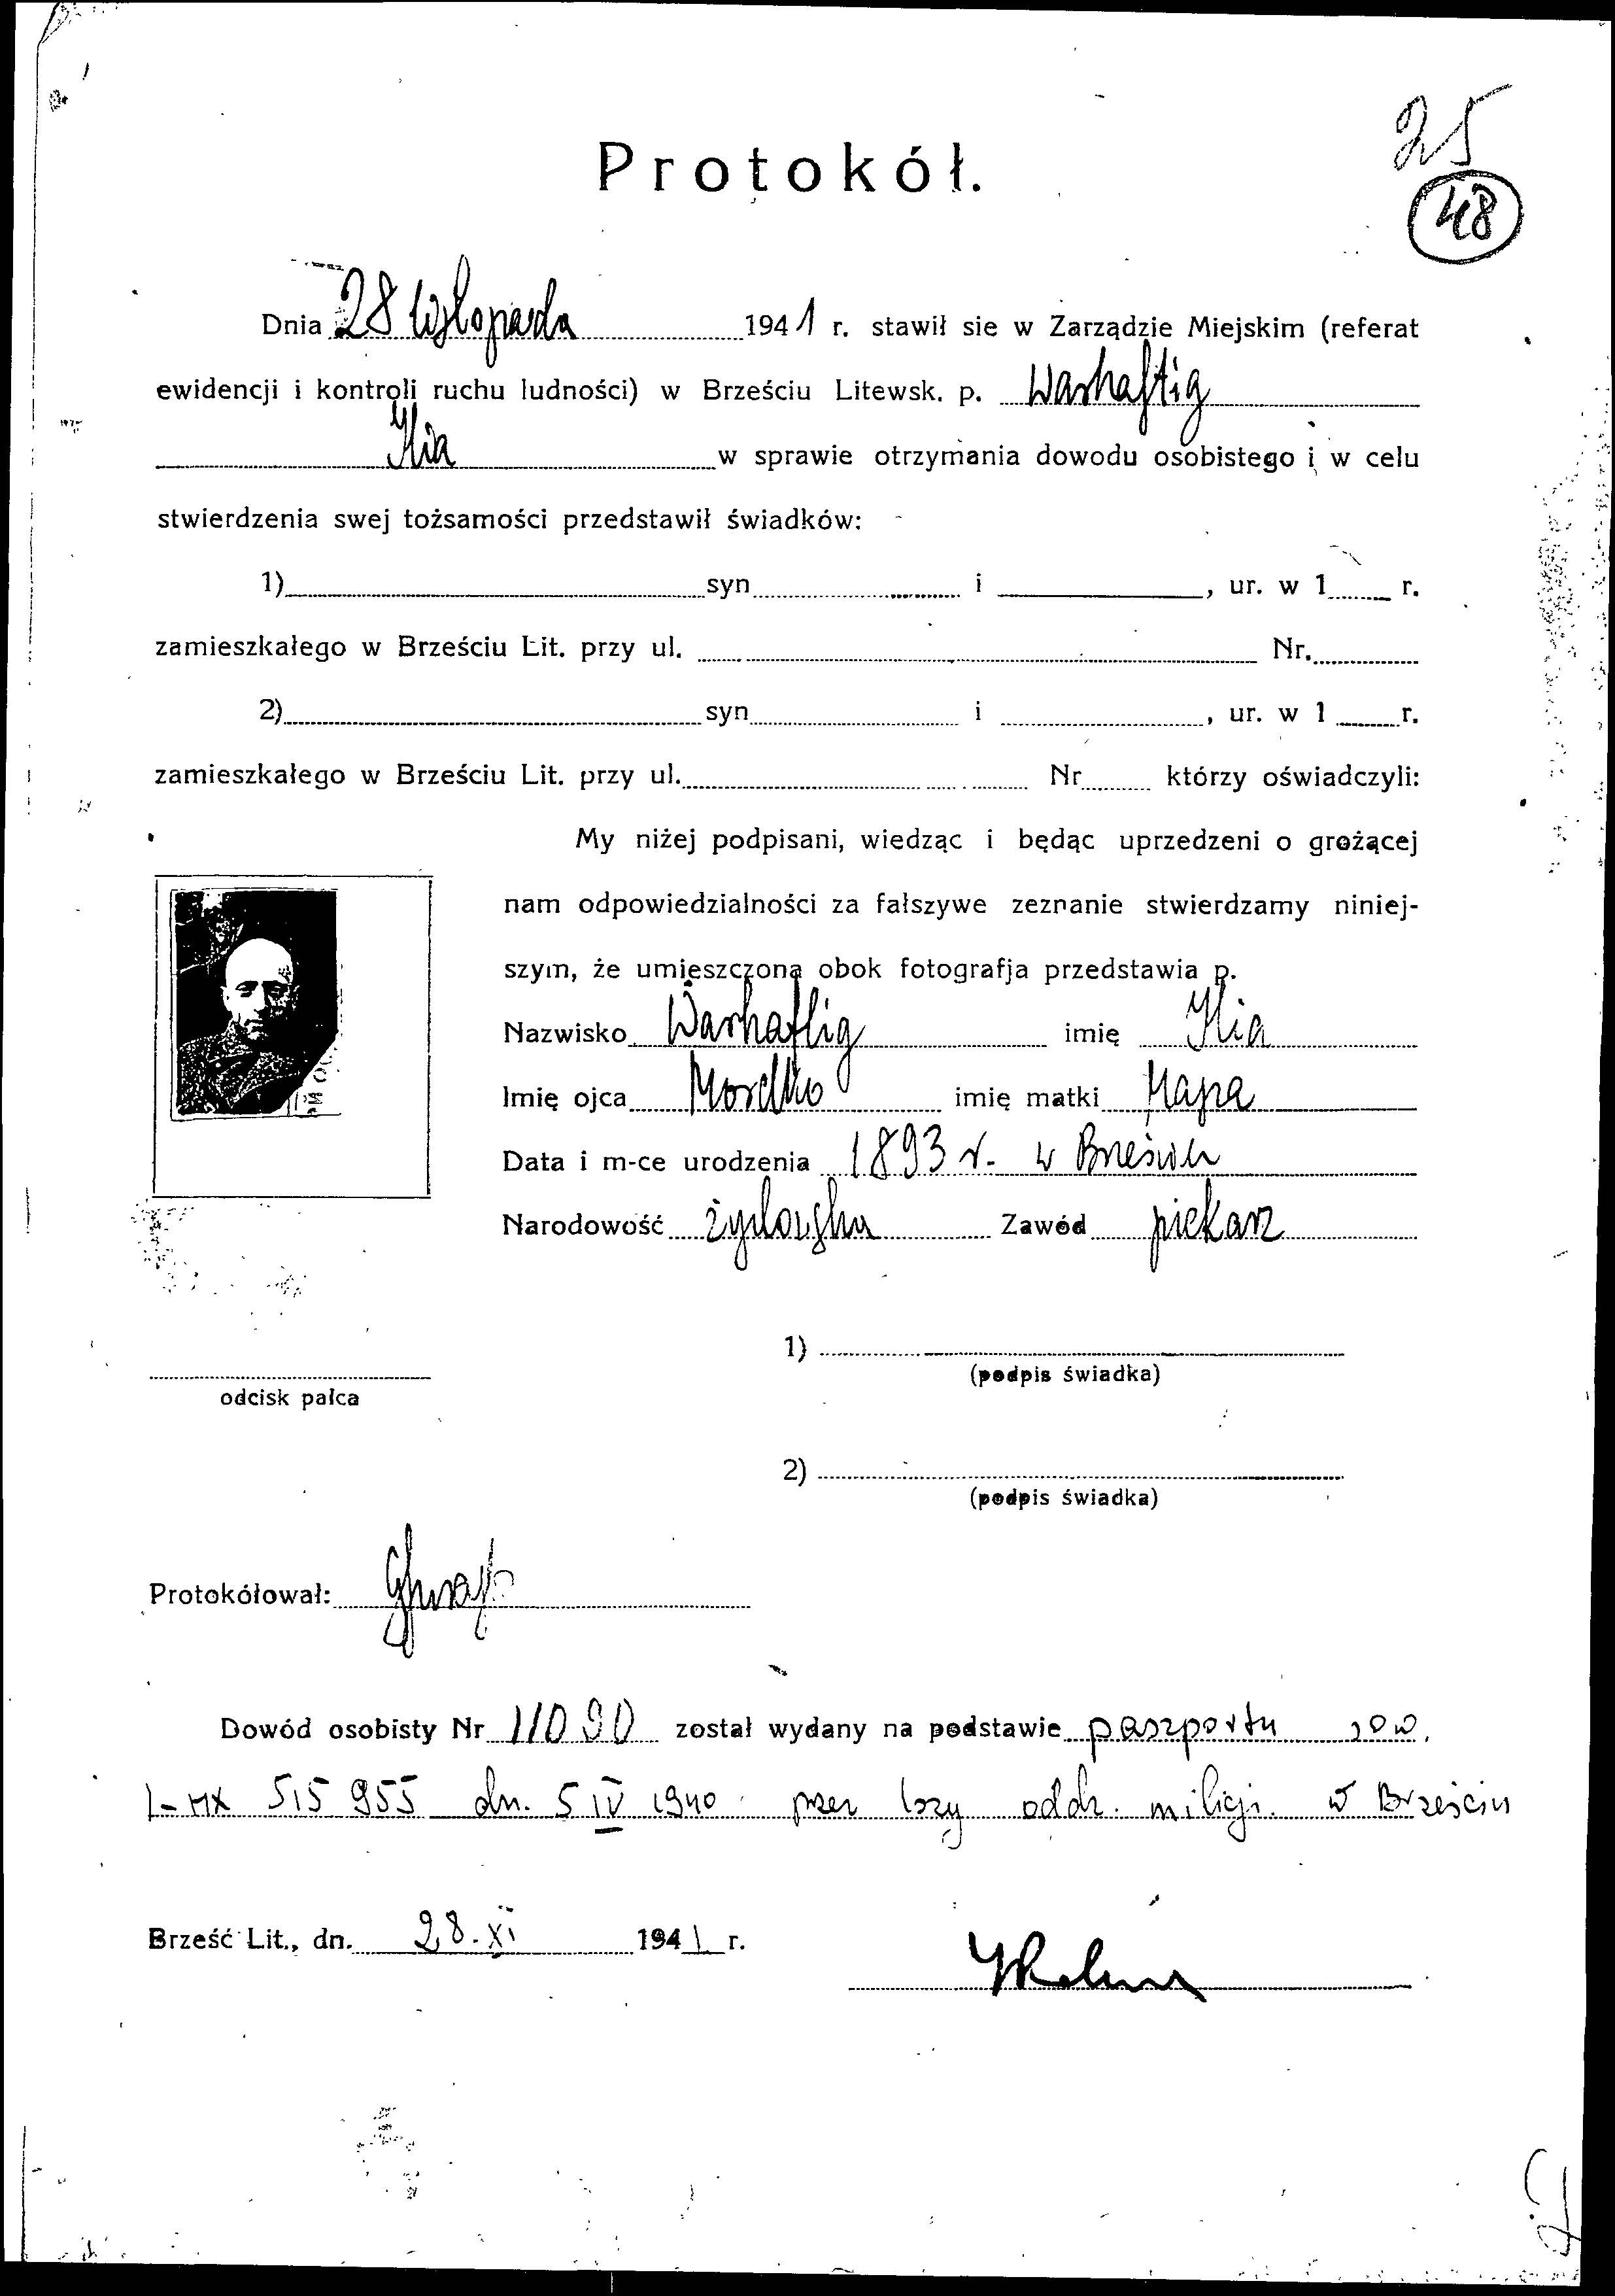 25
48
Protokół.
Dnia 28 listopada 1941 r. stawił sie w Zarządzie Miejskim (referat
ewidencji i kontroli ruchu ludności) w Brześciu Litewsk. p. Warhaftig
Ilia w sprawie otrzymania dowodu osobistego i w celu
stwierdzenia swej tożsamości przedstawił świadków:
1) syn i , ur. w 1 r.
zamieszkałego w Brześciu Lit. przy ul. Nr.
2) syn i , ur. w 1 r.
zamieszkałego w Brześciu Lit. przy ul. Nr którzy oświadczyli:
My niżej podpisani, wiedząc i będąc uprzedzeni o grożącej
nam odpowiedzialności za fałszywe zeznanie stwierdzamy niniej-
szym, że umieszczona obok fotografja przedstawia p.
Nazwisko Warhaftig imię Ilia
Imię ojca Mordko imię matki
Data i m-ce urodzenia 1893 r. w Brześciu
Narodowość żydowska Zawód piekarz
1)
(podpis świadka)
odcisk palca
2)
(podpis świadka)
Protokółował:
Dowód osobisty Nr 11090 został wydany na podstawie paszportu sow.
I-MX 515 955 dn. 5 IV 1940 przez Iszy oddz. milicji w Brześciu
Brześć Lit., dn. 28.XI 1941 r.